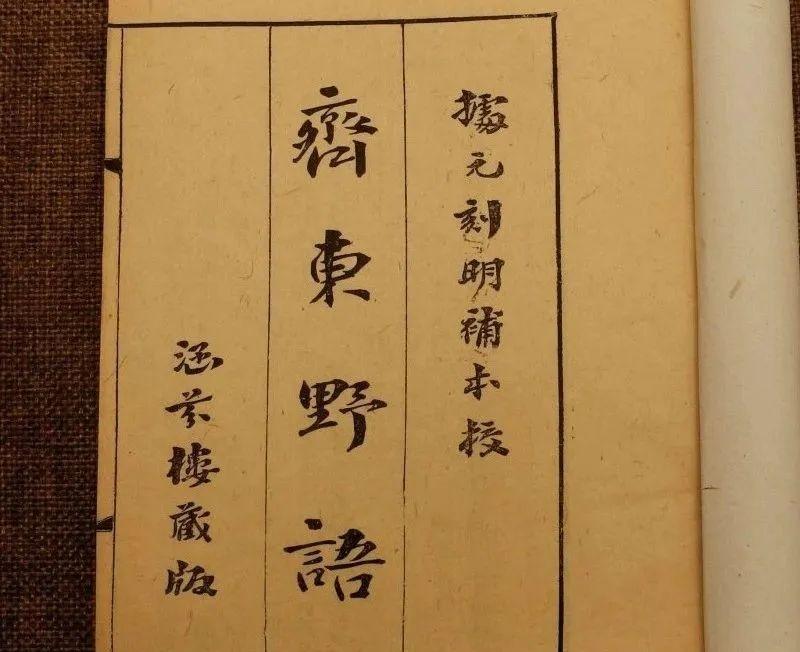 據元刻明補本挍
齊東野語
涵芬樓藏版